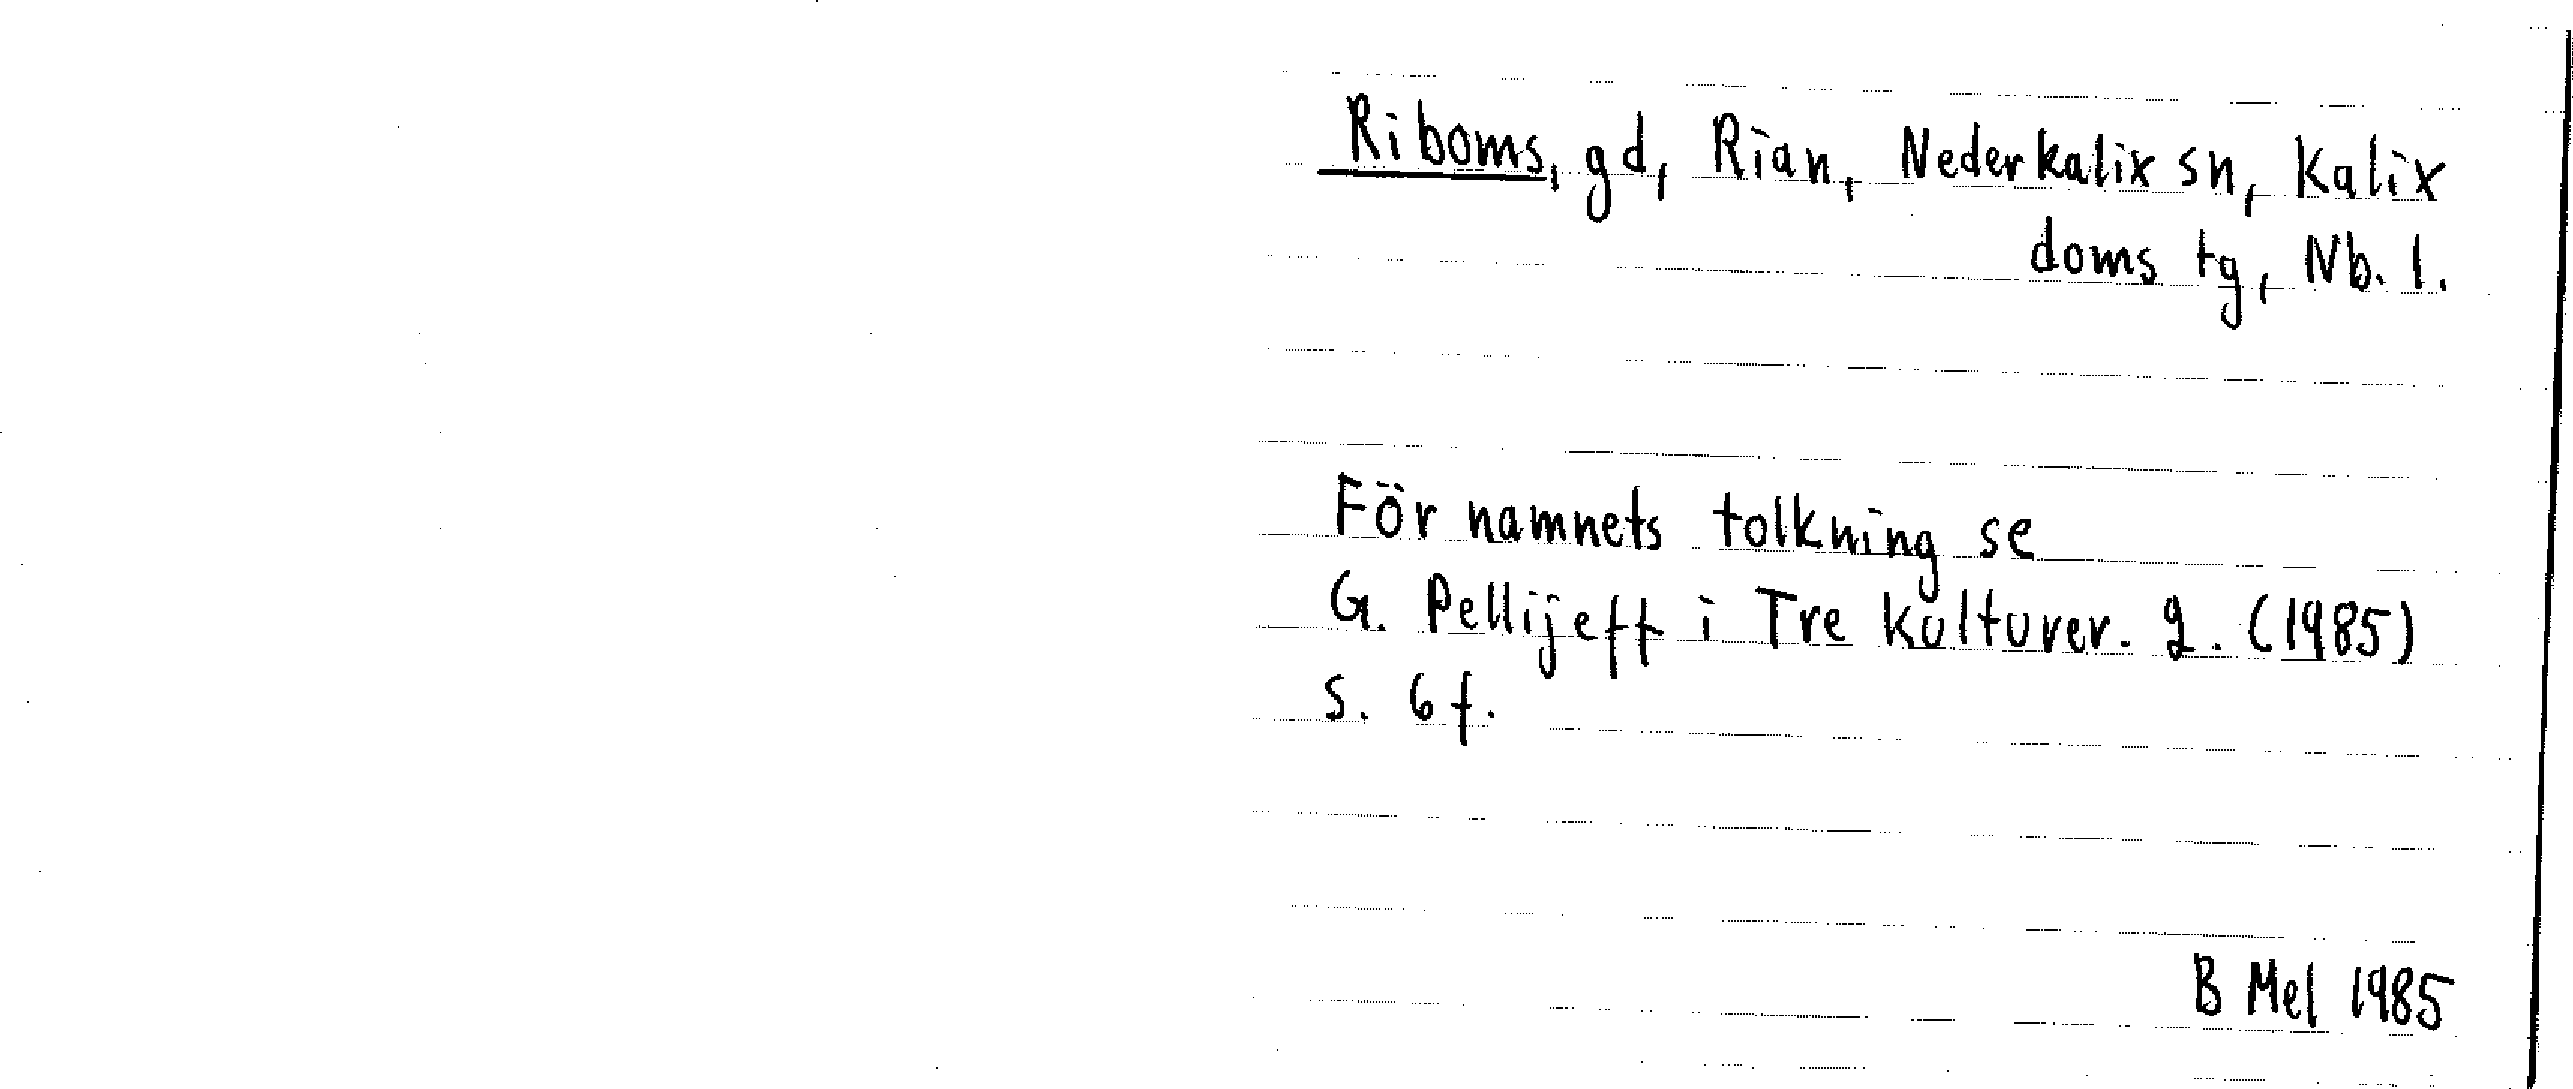 Riboms, gd, Rian, Nederkalix sn, Kalix
doms tg, Nb. l.
För namnets tolkning se
G. Pellijeff i Tre kulturer. 2. (1985)
s. 6 f.
B Mel 1985